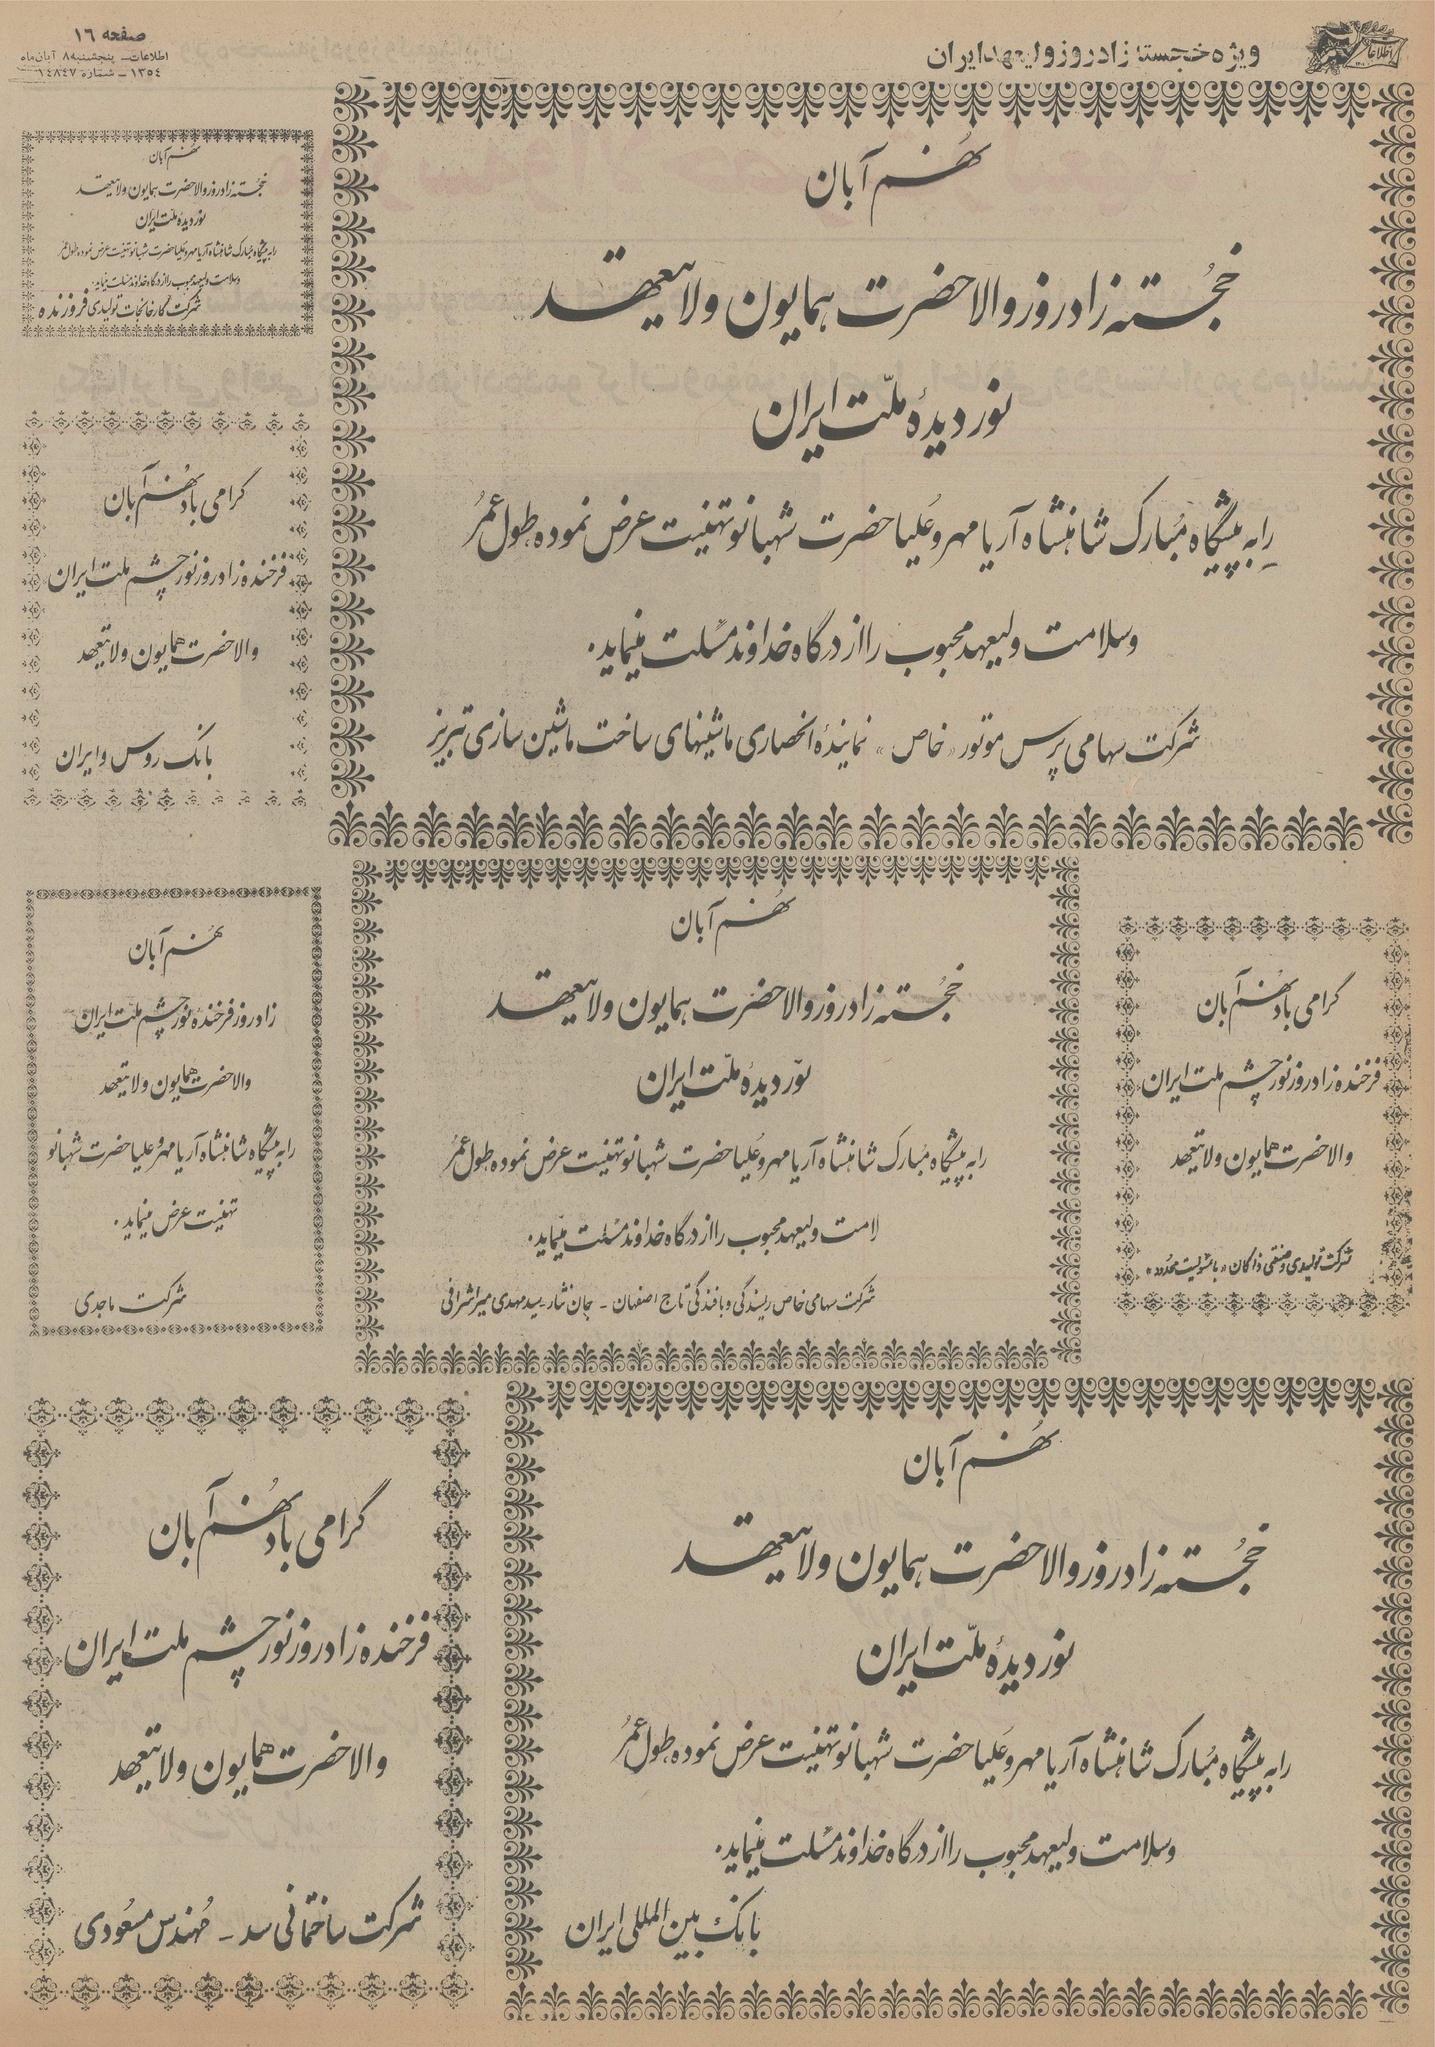 صفحه ۱۶
اطلاعات – پنجشنبه ۸ آبان ماه
۱۳۵۴ – شماره ۱۴۸۴۷
ویژه خجسته زادروز ولیعهد ایران
اطلاعات
نهم آبان
خجسته زادروز والاحضرت همایون ولایتعهد
نوردیدهٔ ملّت ایران
را به پیشگاه مُبارک شاهنشاه آریامهر و عُلیاحضرت شهبانو تهنیت عرض نموده، طول عُمرُ
وسلامت ولیعهد محبوب را از درگاه خداوند مسئلت مینماید.
شرکت سهامی پرس موتور «خاص» نمایندهٔ انحصاری ماشینهای ساخت ماشین سازی تبریز
نهم آبان
خجسته زادروز والاحضرت همایون ولایتعهد
نوردیدهٔ ملّت ایران
را به پیشگاه مبارک شاهنشاه آریامهر و علیاحضرت شهبانو تهنیت عرض نموده طول عمر
وسلامت ولیعهد محبوب را از درگاه خداوند مسئلت مینماید.
شرکت کارخانجات تولیدی فروزنده
گرامی باد نهم آبان
فرخنده زادروز نورچشم ملت ایران
والاحضرت همایون ولایتعهد
بانک روس و ایران
گرامی باد نهم آبان
فرخنده زادروز نورچشم ملت ایران
والاحضرت همایون ولایتعهد
شرکت تولیدی و صنعتی «با مسئولیت محدود»
نهم آبان
خجسته زادروز والاحضرت همایون ولایتعهد
نوردیدهٔ ملّت ایران
را به پیشگاه مُبارک شاهنشاه آریامهر و عُلیاحضرت شهبانو تهنیت عرض نموده، طول عُمرُ
لامت ولیعهد محبوب را از درگاه خداوند مسئلت مینماید.
شرکت سهامی خاص ریسندگی و بافندگی تاج اصفهان – جان نثار – سید مهدی میراشرافی
نهم آبان
زادروز فرخنده نورچشم ملت ایران
والاحضرت همایون ولایتعهد
را به پیشگاه شاهنشاه آریامهر و علیاحضرت شهبانو
تهنیت عرض مینماید.
شرکت ماجدی
نهم آبان
خجسته زادروز والاحضرت همایون ولایتعهد
نوردیدهٔ ملّت ایران
را به پیشگاه مُبارک شاهنشاه آریامهر و عُلیاحضرت شهبانو تهنیت عرض نموده، طول عُمرُ
وسلامت ولیعهد محبوب را از درگاه خداوند مسئلت مینماید.
بانک بین‌المللی ایران
گرامی باد نهم آبان
فرخنده زادروز نورچشم ملت ایران
والاحضرت همایون ولایتعهد
شرکت ساختمانی سد – مُهندس مسعودی